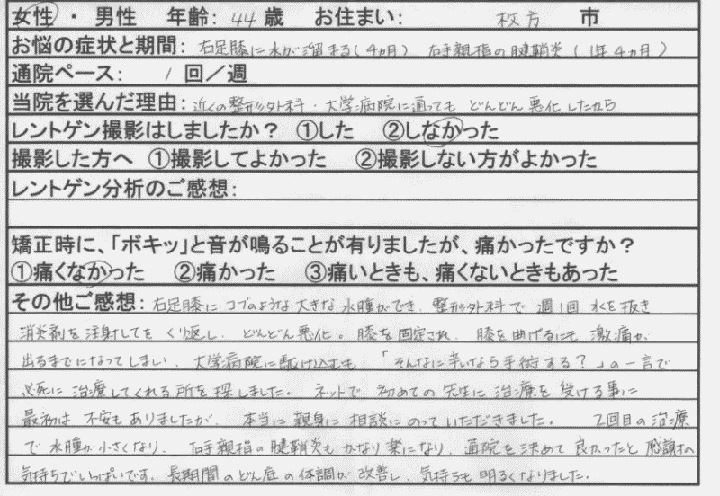 女性 ・ 男性 年齢: 44 歳 お住まい: 枚方 市
お悩の症状と期間: 右足膝に水が溜まる(4ヵ月) 右手親指の腱鞘炎(1年4ヵ月)
通院ペース: 1 回/週
当院を選んだ理由: 近くの整形外科・大学病院に通っても どんどん悪化したから
レントゲン撮影はしましたか? ①した ②しなかった
撮影した方へ ①撮影してよかった ②撮影しない方がよかった
レントゲン分析のご感想:
矯正時に、「ボキッ」と音が鳴ることが有りましたが、痛かったですか?
①痛くなかった ②痛かった ③痛いときも、痛くないときもあった
その他ご感想: 右足膝に コブのような大きな水腫ができ、整形外科で 週1回 水を抜き
消炎剤を注射しても くり返し、どんどん悪化。膝を固定され、膝を曲げるにも 激痛が
出るまでになってしまい、大学病院に駆け込むも 「そんなに辛いなら手術する?」の一言で
必死に 治療してくれる所を探しました。 ネットで 初めての先生に 治療を受ける事に
最初は 不安もありましたが、本当に親身に相談にのっていただきました。 2回目の治療
で 水腫が小さくなり、右手親指の腱鞘炎もかなり楽になり、通院を決めて良かったと感謝の
気持ちでいっぱいです。長期間のどん底の体調が改善し、気持ちも明るくなりました。